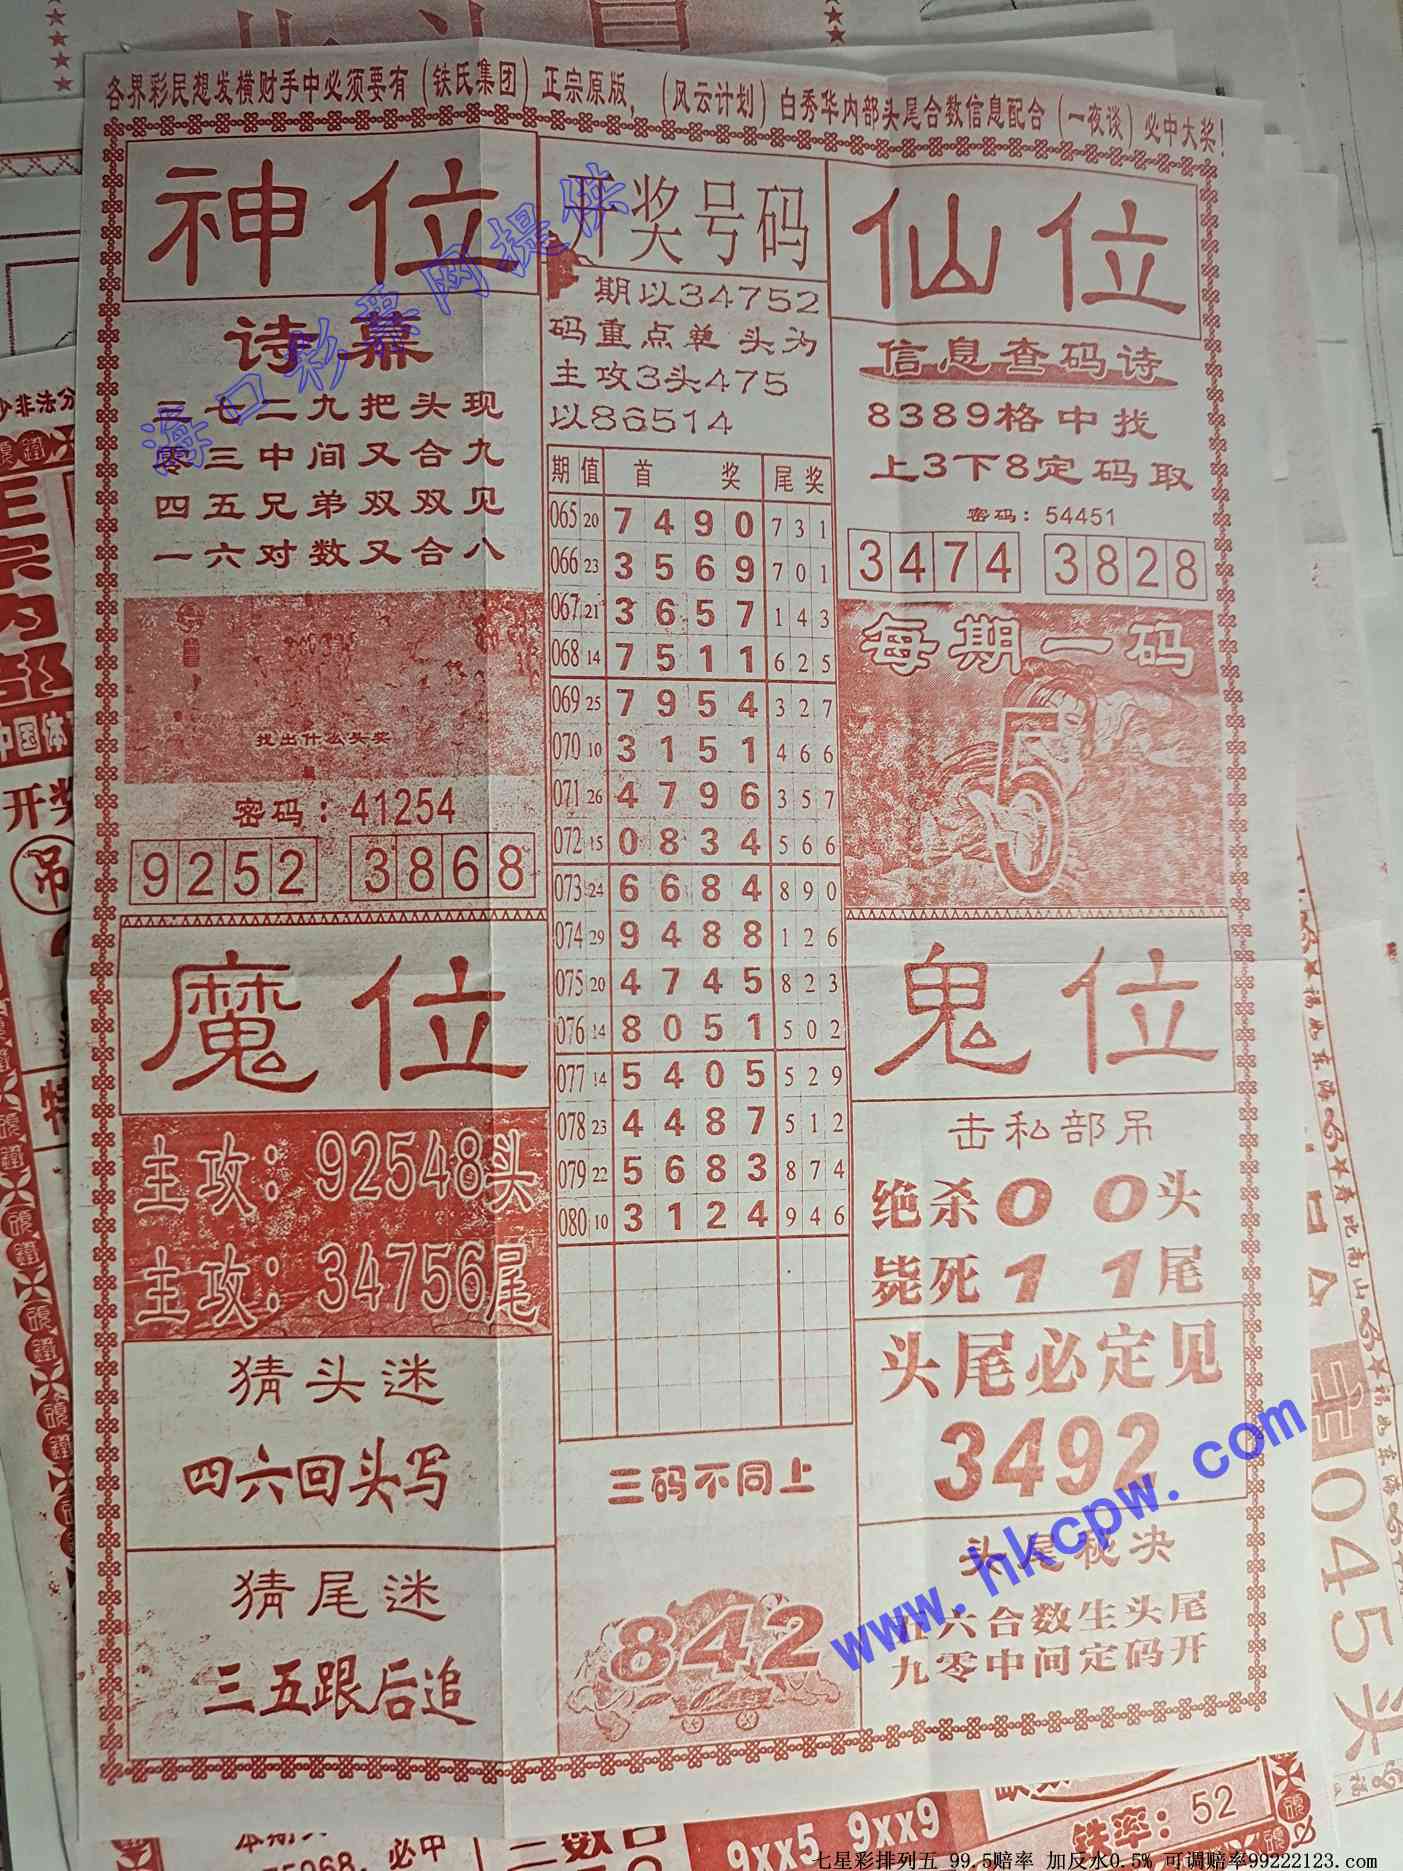 各界彩民想发横财手中必须要有（铁氏集团）正宗原版，（风云计划）白秀华内部头尾合数信息配合（一夜谈）必中大奖！
神位
诗幕
三七二九把头现
零三中间又合九
四五兄弟双双见
一六对数又合八
找出什么头奖
密码：41254
9252 3868
开奖号码
期以34752
码重点单头为
主攻3头475
以86514
期 值 首 奖 尾奖
065 20 7 4 9 0 7 3 1
066 23 3 5 6 9 7 0 1
067 21 3 6 5 7 1 4 3
068 14 7 5 1 1 6 2 5
069 25 7 9 5 4 3 2 7
070 10 3 1 5 1 4 6 6
071 26 4 7 9 6 3 5 7
072 15 0 8 3 4 5 6 6
073 24 6 6 8 4 8 9 0
074 29 9 4 8 8 1 2 6
075 20 4 7 4 5 8 2 3
076 14 8 0 5 1 5 0 2
077 14 5 4 0 5 5 2 9
078 23 4 4 8 7 5 1 2
079 22 5 6 8 3 8 7 4
080 10 3 1 2 4 9 4 6
三码不同上
842
仙位
信息查码诗
8389格中找
上3下8定码取
密码：54451
3474 3828
每期一码
5
魔位
主攻：92548头
主攻：34756尾
猜头迷
四六回头写
猜尾迷
三五跟后追
鬼位
击私部吊
绝杀0 0头
毙死1 1尾
头尾必定见
3492
头尾秘决
五六合数生头尾
九零中间定码开
海口彩票网提供
www.hkcpw.com
少非法分
中国体
开奖
吊
045头
铁率：52
9xx5 9xx9
75968.必中
七星彩排列五 99.5赔率 加反水0.5% 可调赔率99222123.com